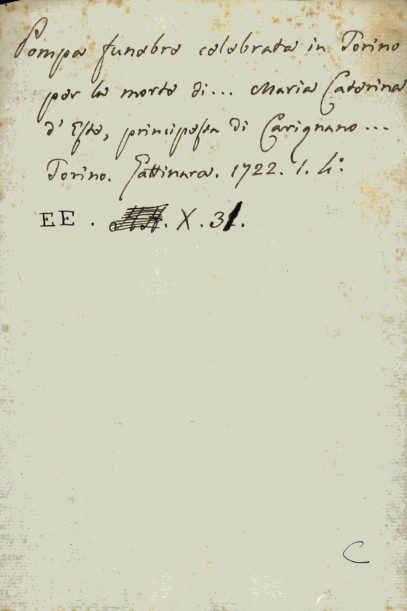 Pompa funebre celebrata in Torino
per la morte di... Maria Caterina
d'Este, principessa di Carignano...
Torino. Gattinara. 1722. 1. 4°.
EE . X . 31.
C